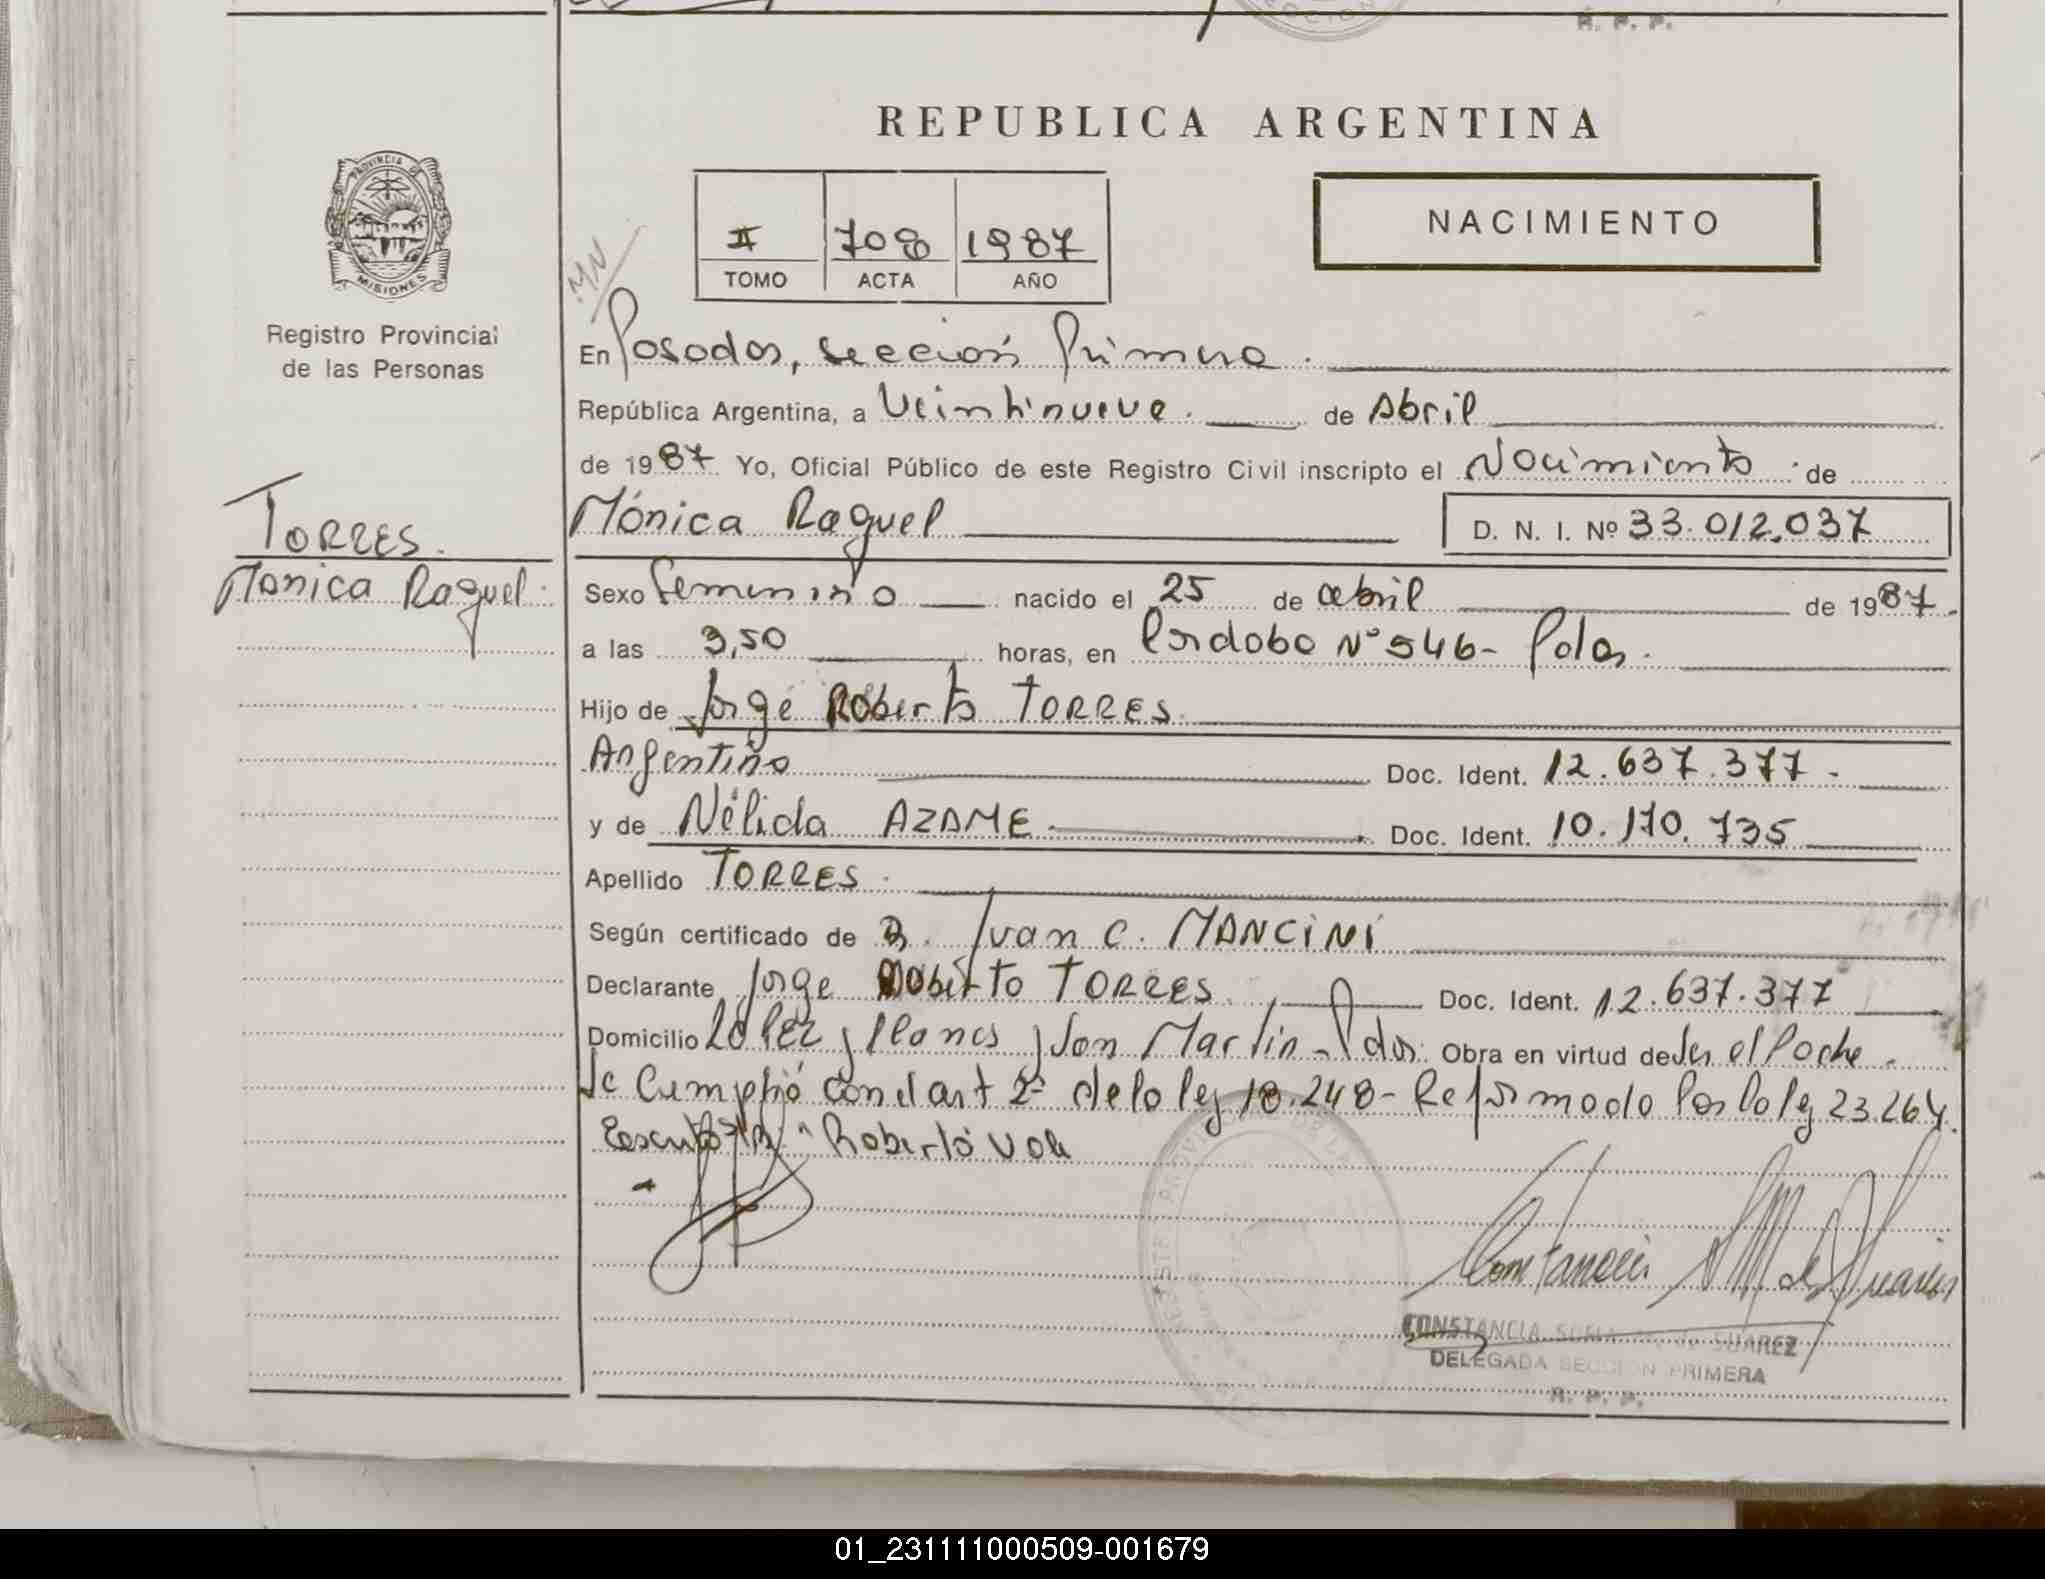 R. P. P.
REPUBLICA ARGENTINA
PROVINCIA DE
MISIONES
Registro Provincial
de las Personas
II 708 1987
TOMO ACTA AÑO
NACIMIENTO
MN
En Posadas, sección Primera.
República Argentina, a Veintinueve. de Abril
de 1987 Yo, Oficial Público de este Registro Civil inscripto el Nacimiento de
TORRES.
Mónica Raquel
Mónica Raquel D. N. I. Nº 33.012.037
Sexo Femenino nacido el 25 de abril de 1987.
a las 3,50 horas, en Cordoba Nº 546- Pdas.
Hijo de Jorge Roberto TORRES.
Argentino Doc. Ident. 12.637.377.
y de Nélida AZAME. Doc. Ident. 10.170.735
Apellido TORRES.
Según certificado de Ivan C. MANCiNi
Declarante Jorge Roberto TORRES. Doc. Ident. 12.637.377
Domicilio LOPEZ y Planes y San Martin - Pdas. Obra en virtud de Ser el Padre.
Se Cumplió con el art 2º de la ley 18.248- Reformado Por la ley 23.264.
Roberto Vale
Constancia de Suarez
CONSTANCIA de SUAREZ
DELEGADA SECCION PRIMERA
R. P. P.
01_231111000509-001679